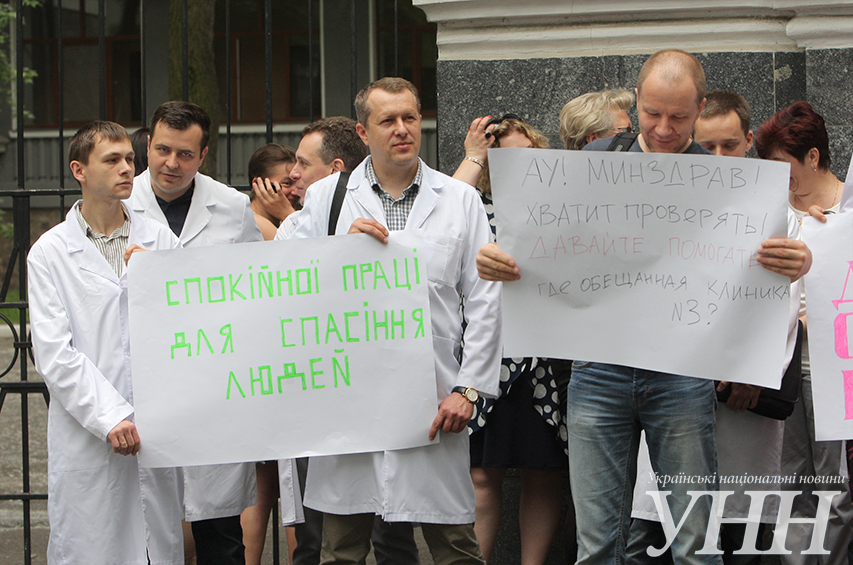 СПОКІЙНОЇ ПРАЦІ
ДЛЯ СПАСІННЯ
ЛЮДЕЙ
АУ! МИНЗДРАВ!
ХВАТИТ ПРОВЕРЯТЬ!
ДАВАЙТЕ ПОМОГАТЬ
ГДЕ ОБЕЩАННАЯ КЛИНИКА
№3?
Українські національні новини
УНН